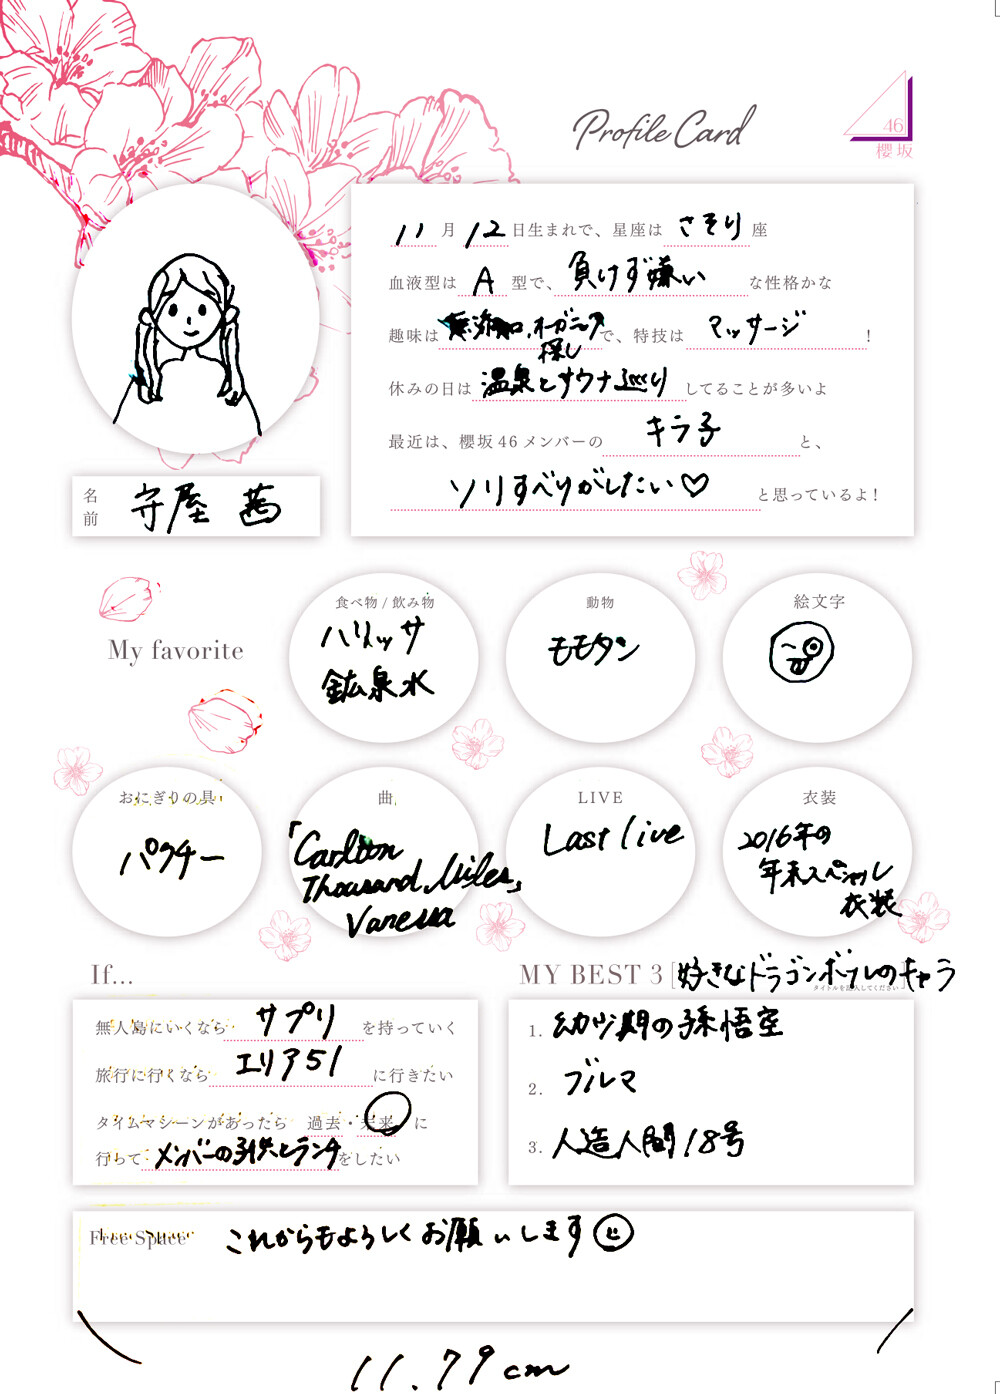 Profile Card
46
櫻坂
11月12日生まれで、星座はさそり座
血液型はA型で、負けず嫌いな性格かな
趣味は オーガニック探しで、特技はマッサージ!
休みの日は温泉とサウナ巡りしてることが多いよ
最近は、櫻坂46メンバーのキラ子と、
ソリすべりがしたい♡と思っているよ!
名前 守屋 茜
My favorite
食べ物/飲み物
ハリッサ
鉱泉水
動物
モモタン
絵文字
おにぎりの具
パクチー
曲
「Carlton
Thousand Miles」
Vanessa
LIVE
Last live
衣装
2016年の
年末スペシャル
衣装
If...
無人島にいくならサプリを持っていく
旅行に行くならエリア51に行きたい
タイムマシーンがあったら 過去・未来 に
行ってメンバーの子供とランチをしたい
MY BEST 3 [好きなドラゴンボールのキャラ]
タイトルを記入してください
1. 幼少期の孫悟空
2. ブルマ
3. 人造人間18号
Free Space これからもよろしくお願いします
11.79cm